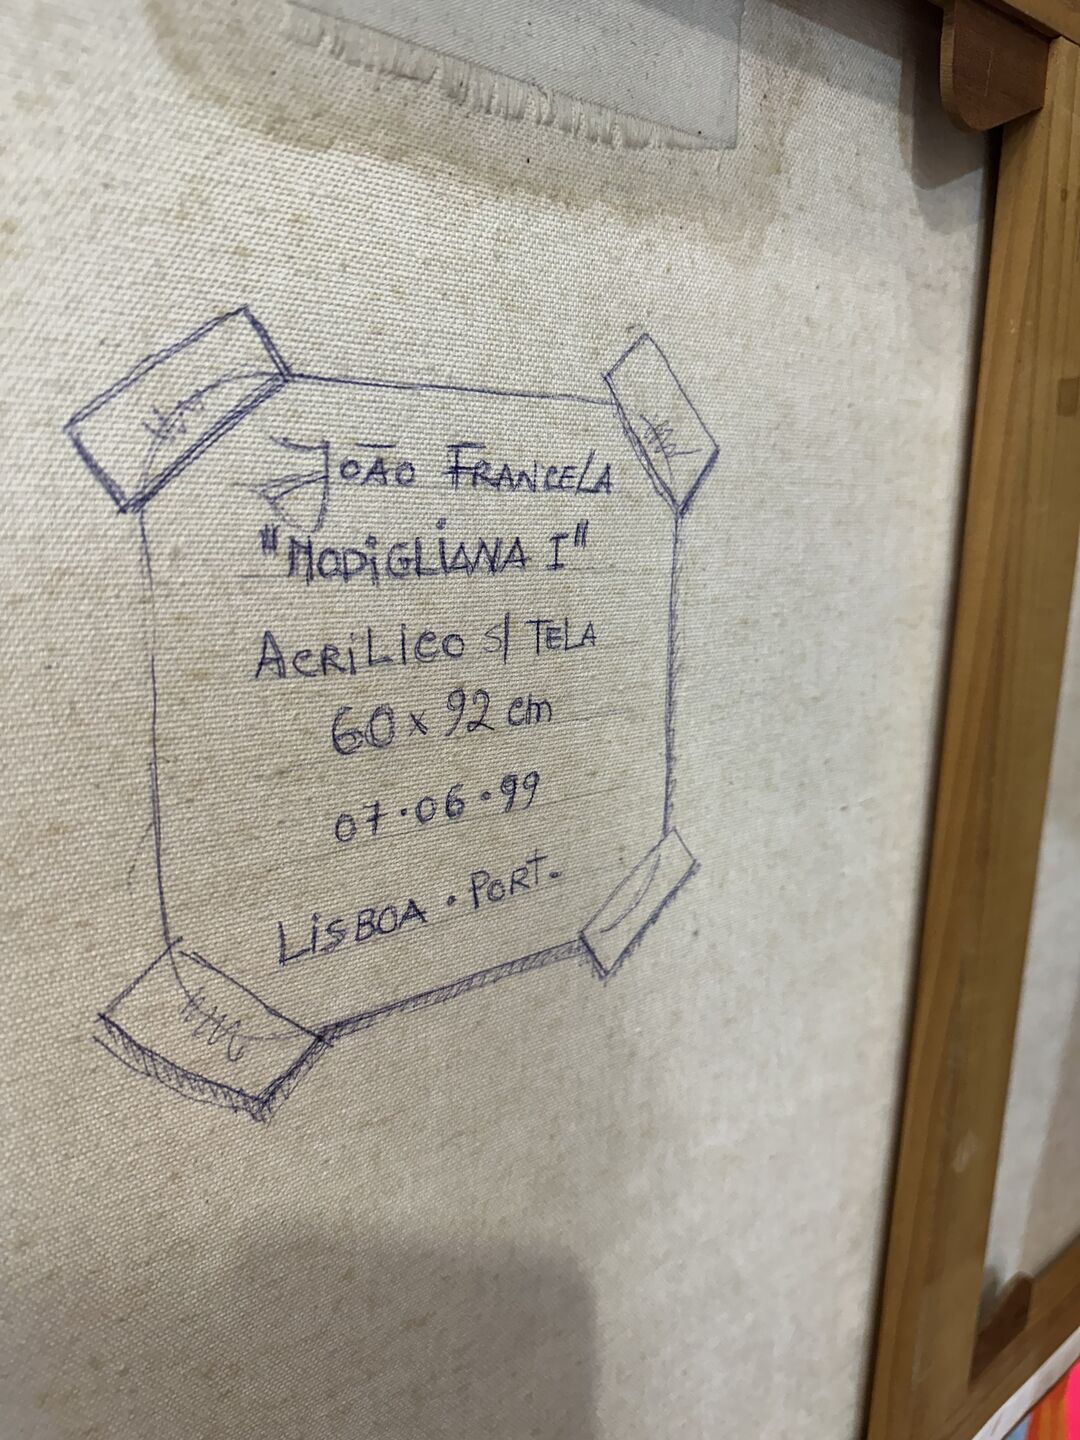 João FRANCELA
"MODiGLiANA I"
ACRiLiCO S/ TELA
60 x 92 cm
07·06·99
LiSBOA · PORT.